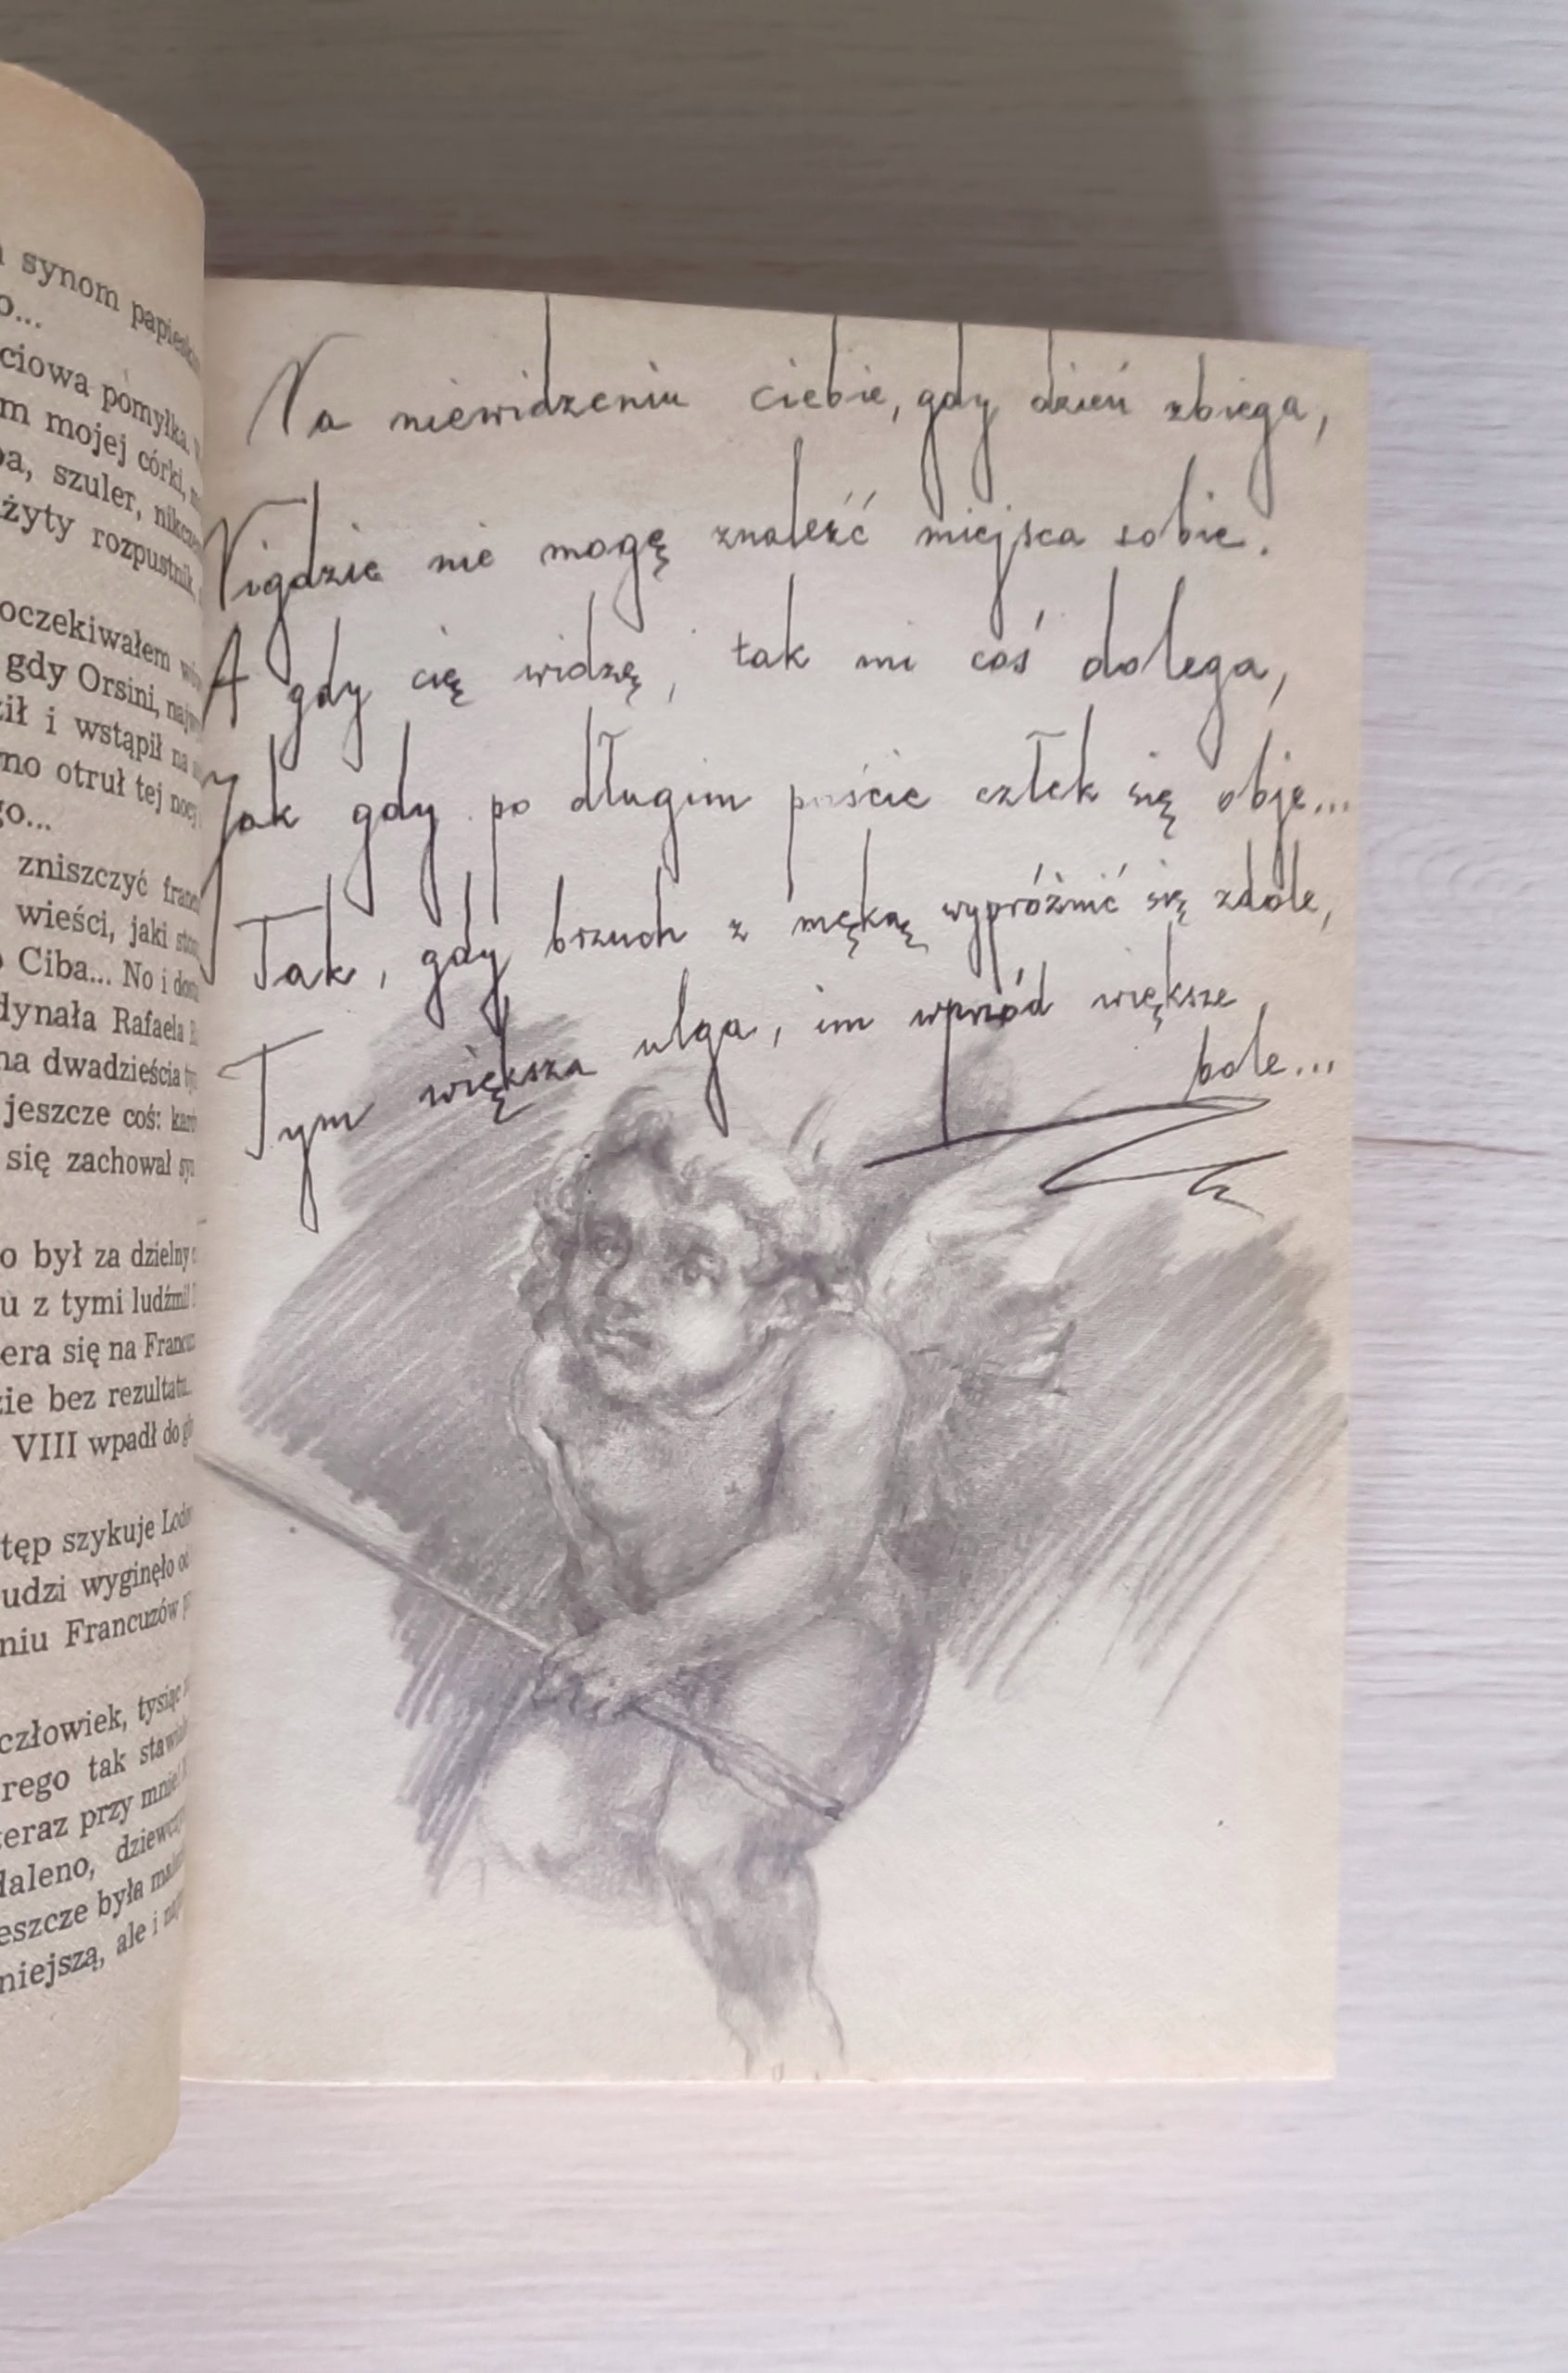 synom papieskim
o...
ciowa pomyłka.
m mojej córki,
ba, szuler,
żyty rozpustnik,
oczekiwałem
gdy Orsini,
ził i wstąpił na
no otruł tej nocy
go...
zniszczyć
wieści, jaki
Ciba... No i
dynała Rafaela
na dwadzieścia
jeszcze coś:
się zachował
o był za dzielny
u z tymi ludźmi!
era się na
zie bez rezultatu.
VIII wpadł do
tęp szykuje
udzi wyginęło od
niu Francuzów
człowiek, tysiąc
rego tak
teraz przy mnie!
daleno,
eszcze była
niejszą, ale i
Na niewidzeniu ciebie, gdy dzień zbiega,
Nigdzie nie mogę znaleźć miejsca sobie.
A gdy cię widzę, tak mi coś dolega,
Jak gdy po długim poście człek się obje...
Tak, gdy brzuch z męką wypróżnić się zdole,
Tym większa ulga, im wprzód większe
bole...